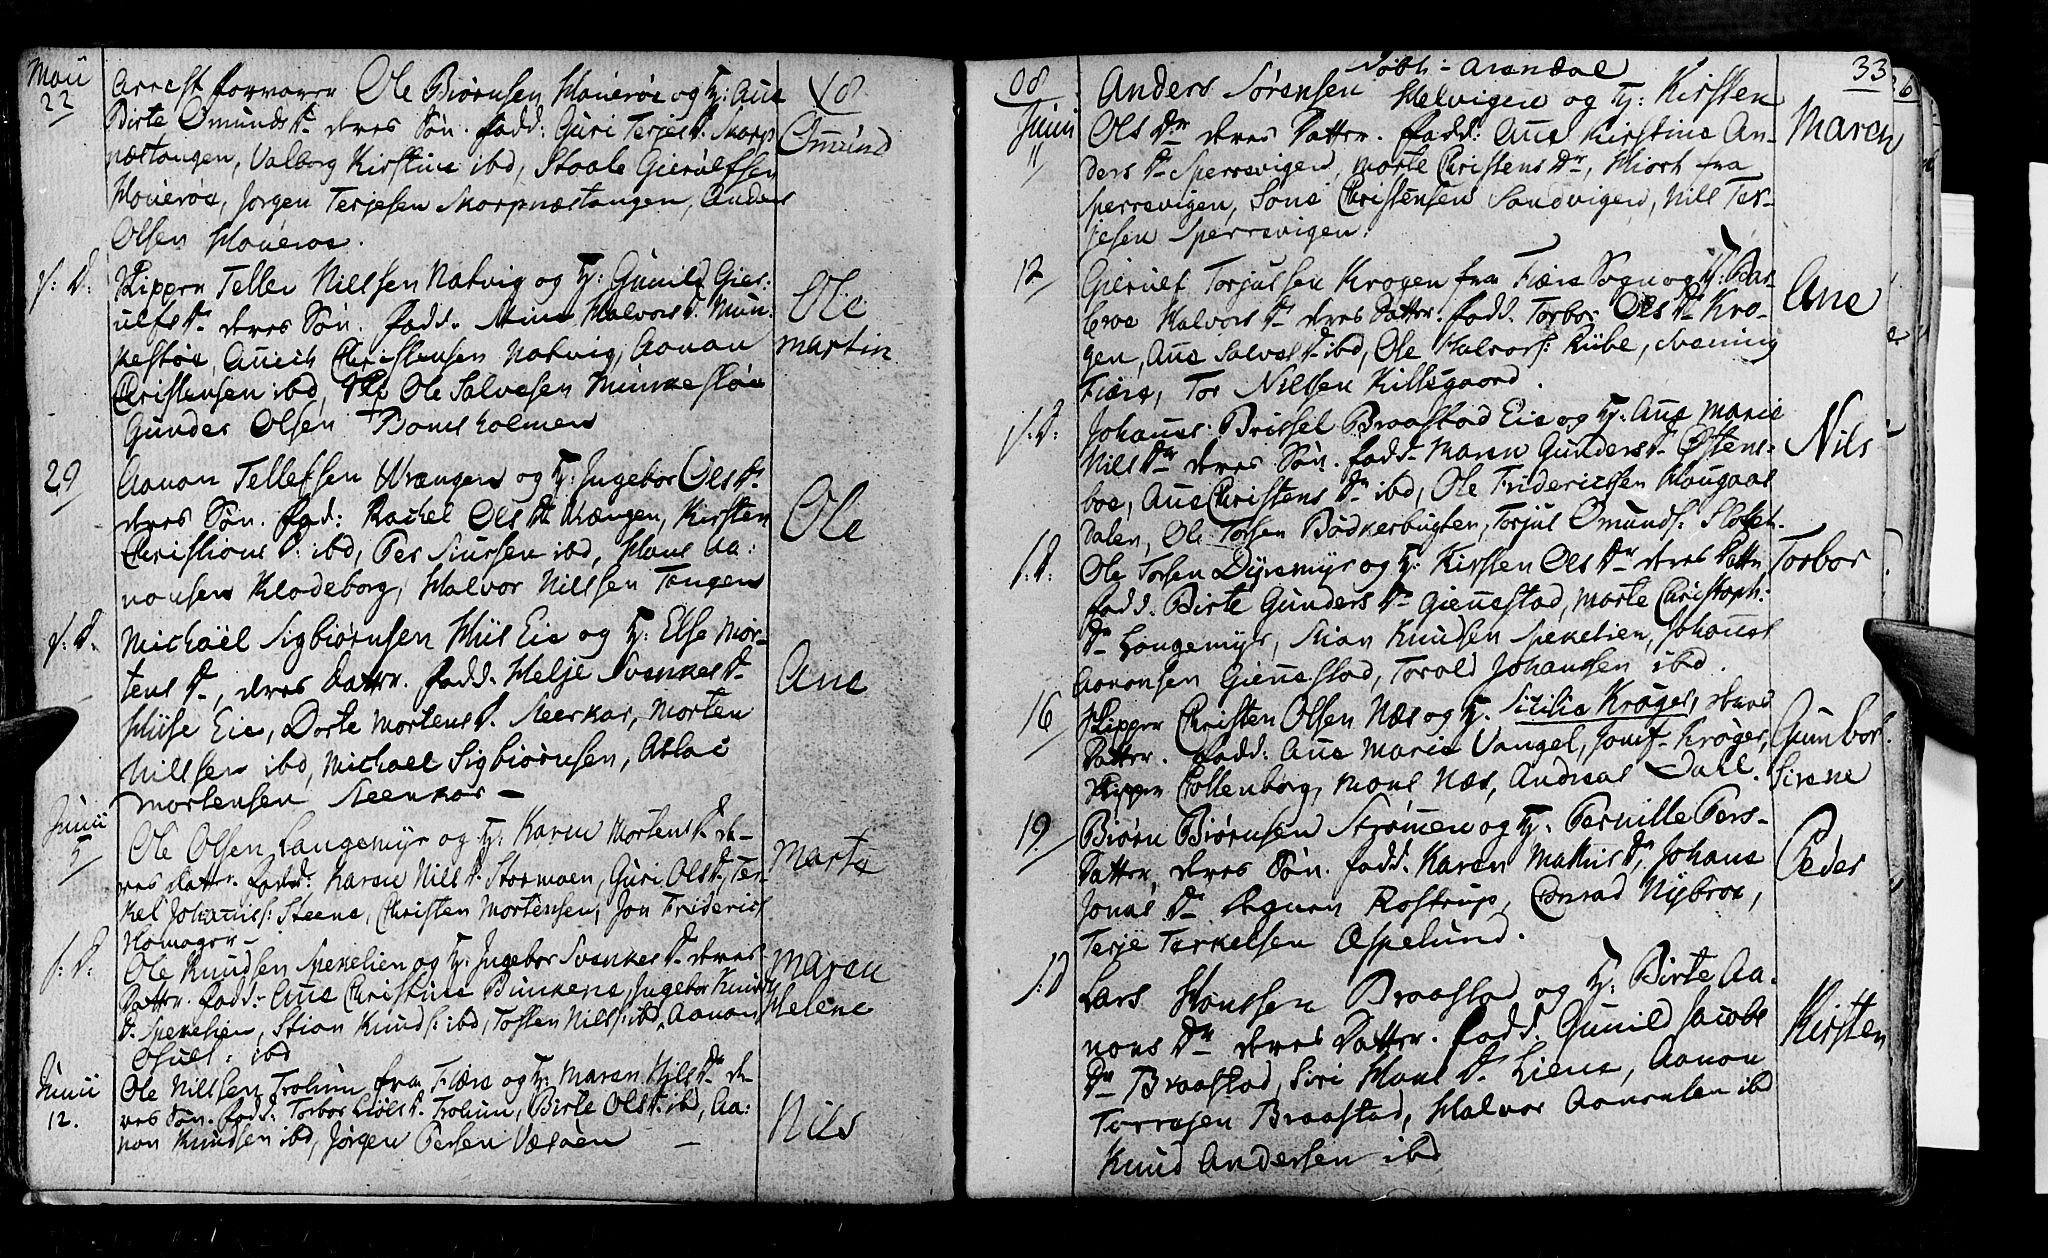 Maii
22
Arrest forvarer Ole Biørnsen Haverøe og H: Ane
18
Birte Omunds Dr deres Søn. fadd: Guri Terjes D. Skarp
Omund
næstangen, Valborg Kirstine ibd, Staale Gierulfsen
Haverøe, Jørgen Terjesen Skarpnæstangen, Anders
Olsen Haverøe.
s. D.
Skipper Tellef Nielsen Natvig og H: Gunild Gier:
Ole
martin
ulfs Dr deres Søn. fadd. Stine Halvors D. Mun:
kestøe, Christensen Natvig, Aanon
Christensen ibd, Ole Salvesen Munkestøe
Gunder Olsen Bomsholmen
29
Aanon Tellefsen Vrængen og H: Ingebor Ols Dr
Ole
deres Søn. fad: Rachel Ols Dr Vrængen, Kirsten
Christians D. ibd, Per Siursen ibd, Hans Aa:
nonsen Klodeborg, Halvor Nilssen Tangen
s. D.
Michaël Sigbiørnsen Huus Eie og H: Else Mor-
Ane
tens Dr, deres Datter. fadd. Helje Svenkes Dr
Huse Eie, Dorte Mortens D. Neerkar, Morten
Nilssen ibd, Michael Sigbiørnsen, Aslac
Mortensen Neerkar -
Junii
5
Ole Olsen Langemyr og H: Karen Mortens D. de-
Marte
res Datter. fadd: Karen Nils D. Stormoen, Guri Ols D., Ter-
kel Johanss: Steene, Christen Mortensen, Jon Friderics
Homager -
s: D:
Ole Knudsen Spekelien og H: Ingebor Svenkes Dr deres
Maren
Helene
Datter. fadd. Ane Christine Bunkene, Ingebor Knuds
D. Spekelien, Stian Knuds: ibd, Tosten Nilss: ibd, Aanon
Osuls: ibd
Junii
12.
Ole Nilssen Trolum fra Fiære og H: Maren Nils Dr de-
Nils
res Søn. fadd: Torbor D. Trolum, Birte Ols D. ibd, Aa:
non Knudsen ibd, Jørgen Persen Væraaen -
08
Øbth: Arendal
33
Junii
11
Anders Sørensen Helvigen og H: Kirsten
Maren
Ols Dr deres Datter. fadd: Ane Kirstine An-
ders Dr Sperrevigen, Marte Christens Dr, Hiort fra
Sperrevigen, Søns Christensen Sandvigen, Nill Ter-
jesen Sperrevigen.
12
Gierulf Torjussen Krogen fra Fiære Sogn og H: Bar-
Ane
broe Halvors Dr deres Datter. fadd. Torbor Ols Dr Kro-
gen, Ane Salves Dr ibd, Ole Halvors: Rübe, Svening
Fiære, Tor Nilssen Killsgaard.
s. D:
Johannes: Brissel Braastad Eie og H: Ane Marie
Nils
Nils Dr deres Søn. fadd. Maren Gunders Dr Østens-
boe, Ane Christens Dr ibd, Ole Fridericssen Haugaas
Dalen, Ole Torsen Bødkerbugten, Torjus Omunds: Slottet.
s. D.
Ole Torsen Dyremyr og H: Kirsten Ols Dr deres Datter
Torbor
fadd. Birte Gunders Dr Giennestad, Marte Christoph:
Dr Langemyr, Stian Knudsen Spekelien, Johannes
Aanonsen Giennestad, Torald Johanssen ibd.
16
Skipper Christen Olsen Næs og H. Sicilia Krøger, deres
Gunbor.
Datter. fadd: Ane Marie Vangel, Jomf. Krøger,
Skipper Collenborg, Mons Næs, Andreas Dahl.
Sirene
19
Biørn Biørnsen Strømen og H: Pernille Pers-
Peder
Datter, deres Søn. fadd. Karen Mathis Dr, Johane
Jonas Dr Ragnon Rostrup, Conrad Nybroe,
Terje Terkelsen Æspelund.
s. D
Lars Hanssen Braastad og H: Birte Aa-
Kirsten
nons Dr deres Datter. fadd. Gunild Jacobs
Dr Braastad, Siri Hans Dr Liene, Aanon
Torresen Braastad, Halvor Aanonsen ibd
Knud Andersen ibd